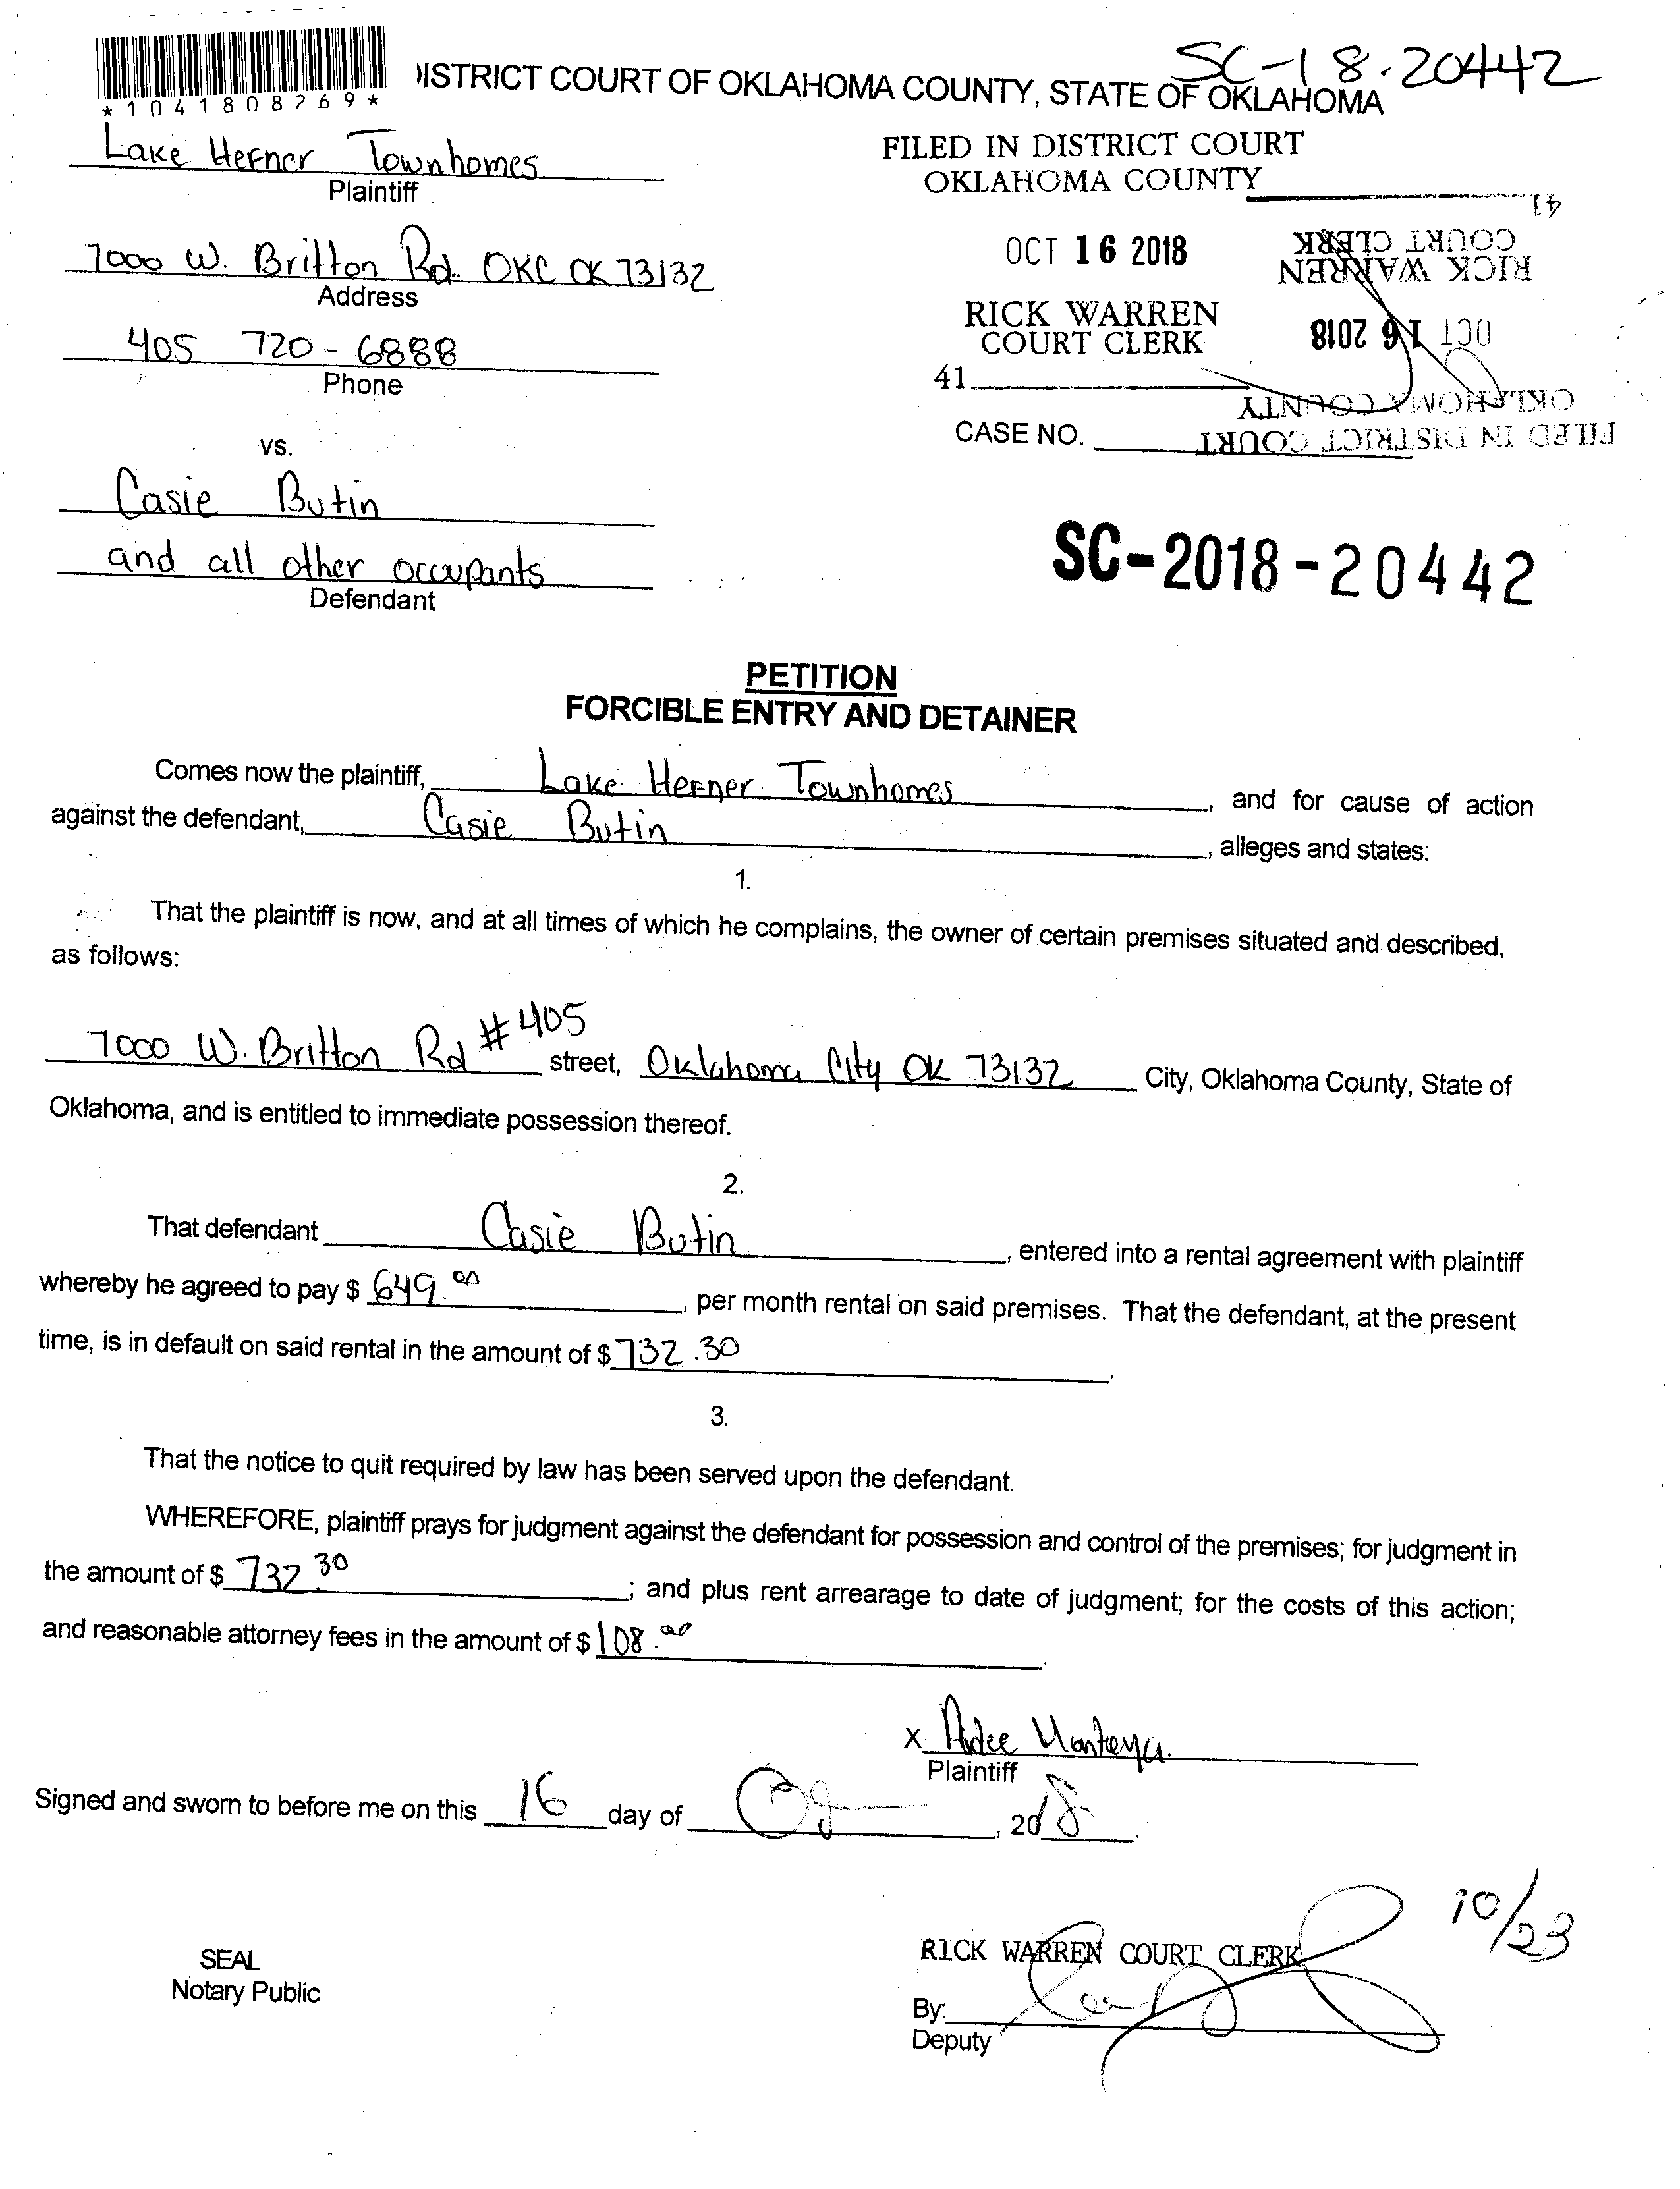 SC-18-20442
*1041808269*
DISTRICT COURT OF OKLAHOMA COUNTY, STATE OF OKLAHOMA
Lake Hefner Townhomes
Plaintiff
7000 W. Britton Rd. OKC OK 73132
Address
405 720-6888
Phone
vs.
Casie Butin
and all other occupants
Defendant
FILED IN DISTRICT COURT
OKLAHOMA COUNTY
OCT 16 2018
RICK WARREN
COURT CLERK
41
CASE NO.
FILED IN DISTRICT COURT
OKLAHOMA COUNTY
OCT 16 2018
RICK WARREN
COURT CLERK
41
SC-2018-20442
PETITION
FORCIBLE ENTRY AND DETAINER
Comes now the plaintiff, Lake Hefner Townhomes, and for cause of action
against the defendant, Casie Butin, alleges and states:
1.
That the plaintiff is now, and at all times of which he complains, the owner of certain premises situated and described,
as follows:
7000 W. Britton Rd #405 street, Oklahoma City OK 73132 City, Oklahoma County, State of
Oklahoma, and is entitled to immediate possession thereof.
2.
That defendant Casie Butin, entered into a rental agreement with plaintiff
whereby he agreed to pay $ 649.00, per month rental on said premises. That the defendant, at the present
time, is in default on said rental in the amount of $ 732.30.
3.
That the notice to quit required by law has been served upon the defendant.
WHEREFORE, plaintiff prays for judgment against the defendant for possession and control of the premises; for judgment in
the amount of $ 732.30; and plus rent arrearage to date of judgment; for the costs of this action;
and reasonable attorney fees in the amount of $ 108.00.
X
Plaintiff
Signed and sworn to before me on this 16 day of , 2018.
10/23
SEAL
Notary Public
RICK WARREN COURT CLERK
By:
Deputy